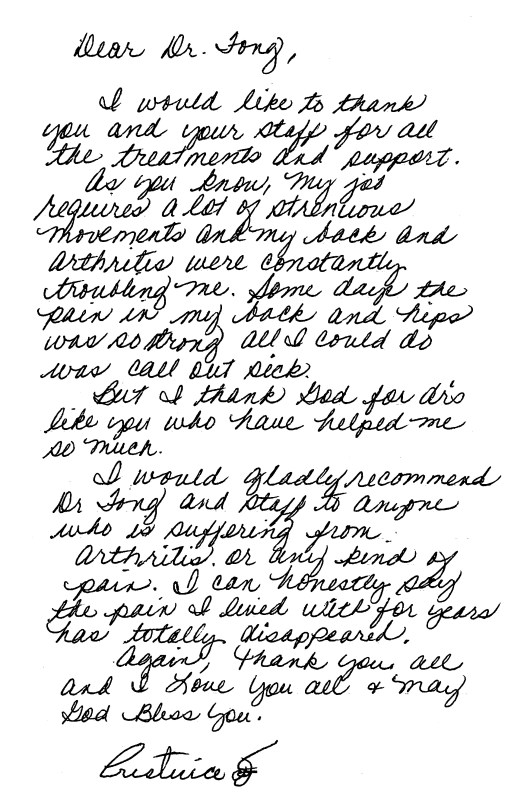 Dear Dr. Tong,
I would like to thank
you and your staff for all
the treatments and support.
As you know, my job
requires a lot of strenuous
movements and my back and
arthritis were constantly
troubling me. Some days the
pain in my back and hips
was so strong all I could do
was call out sick.
But I thank God for dr's
like you who have helped me
so much.
I would gladly recommend
Dr Tong and staff to anyone
who is suffering from
arthritis. or any kind of
pain. I can honestly say
the pain I lived with for years
has totally disappeared.
Again, thank you all
and I Love you all & may
God Bless You.